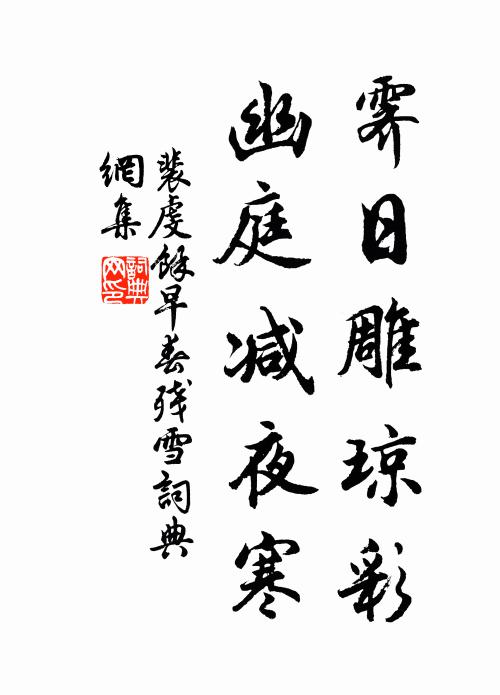 霽日雕琼彩
幽庭減夜寒
裴虔餘早春殘雪詞典
網集
詞典網印